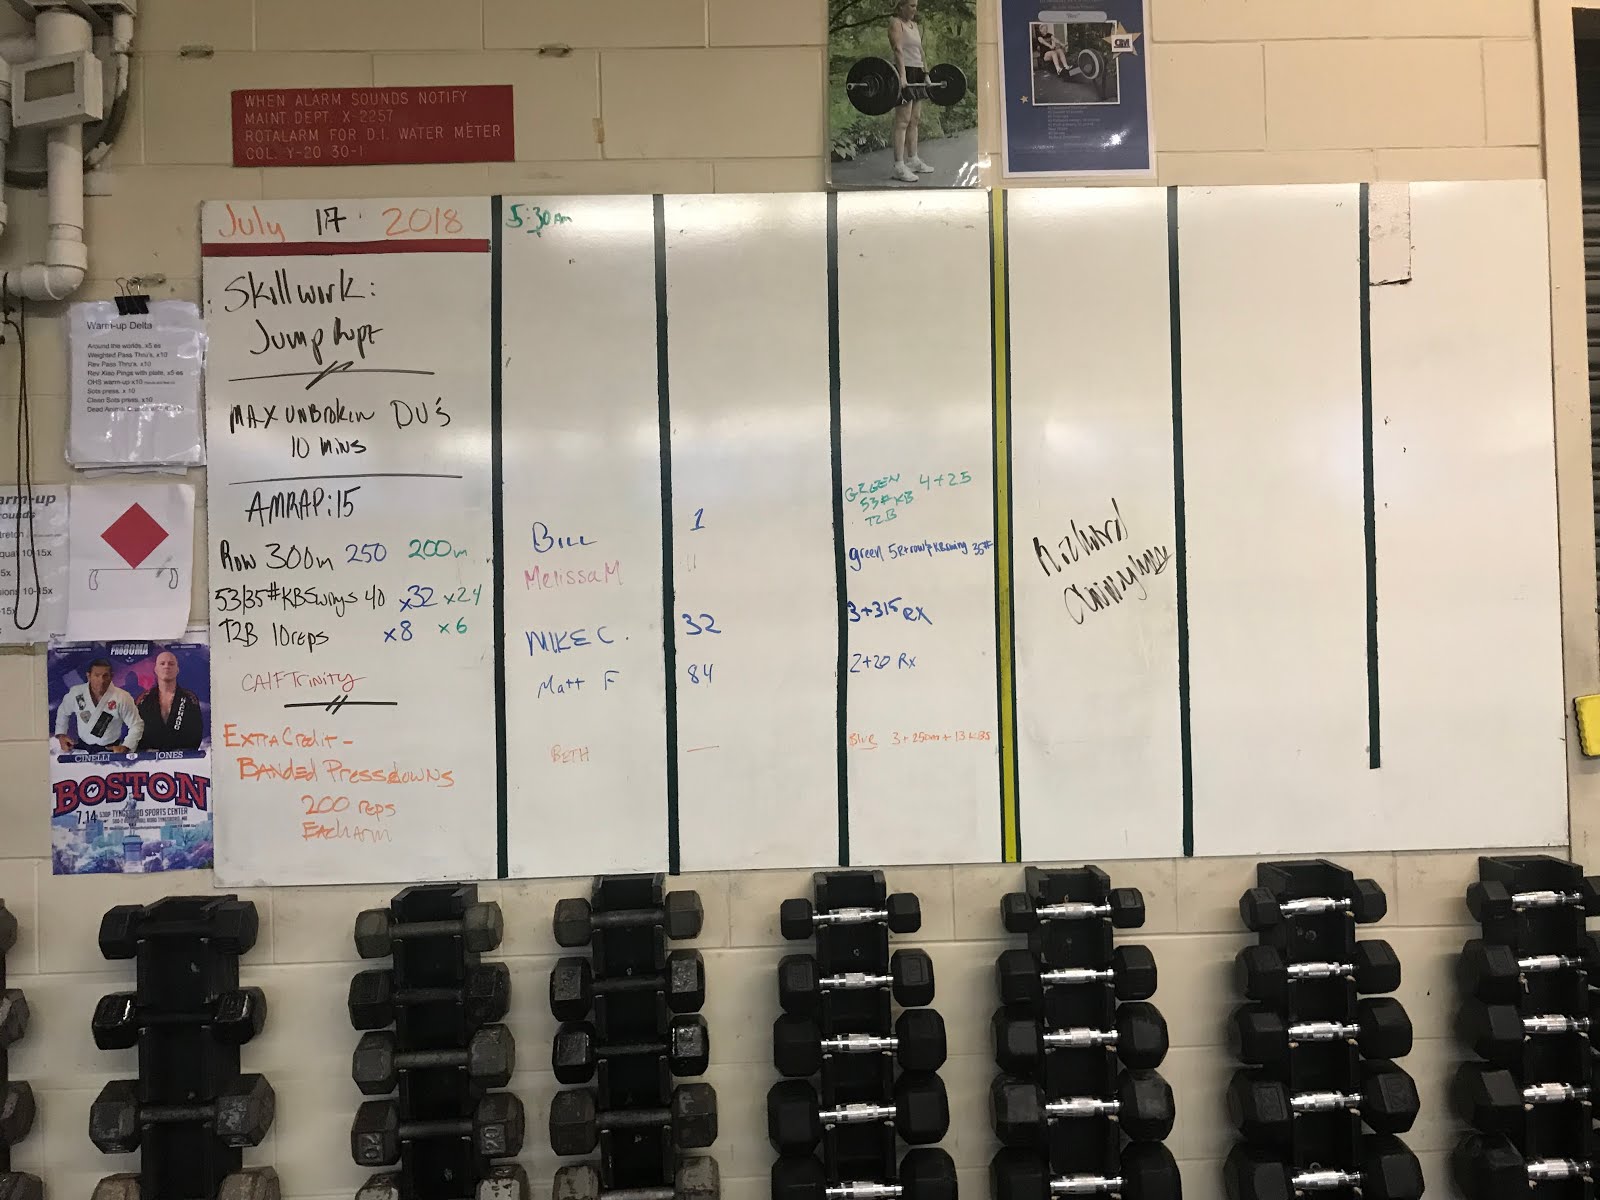 WHEN ALARM SOUNDS NOTIFY
MAINT DEPT. X-2257
ROTALARM FOR D.I. WATER METER
COL. Y-20 30-1
July 17 2018
Skillwork:
Jump Rope
MAX UNBROKEN DU'S
10 MINS
AMRAP:15
Row 300m 250 200m
53/35# KB Swings 40 x32 x24
T2B 10 reps x8 x6
CAIFTrinity
Extra Credit -
Banded Pressdowns
200 reps
Each arm
5:30am
Bill
1
GREEN 4+25
53# KB
T2B
MelissaM
11
green 5R+row+KBswing 35#
MIKE C.
32
3+315 RX
Matt F
84
2+20 Rx
BETH
—
Blue 3+250m+13 KBS
Richard
Warm-up Delta
Around the worlds, x5 es
Weighted Pass Thru's, x10
Rev Pass Thru's, x10
Rev Xiao Pings with plate, x5 es
OHS warm-up x10
Sots press, x 10
Clean Sots press, x10
Dead
arm-up
10-15x
10-15x
PROBOMA
CINELLI VS JONES
BOSTON
7.14
TYNGSBORO SPORTS CENTER
20